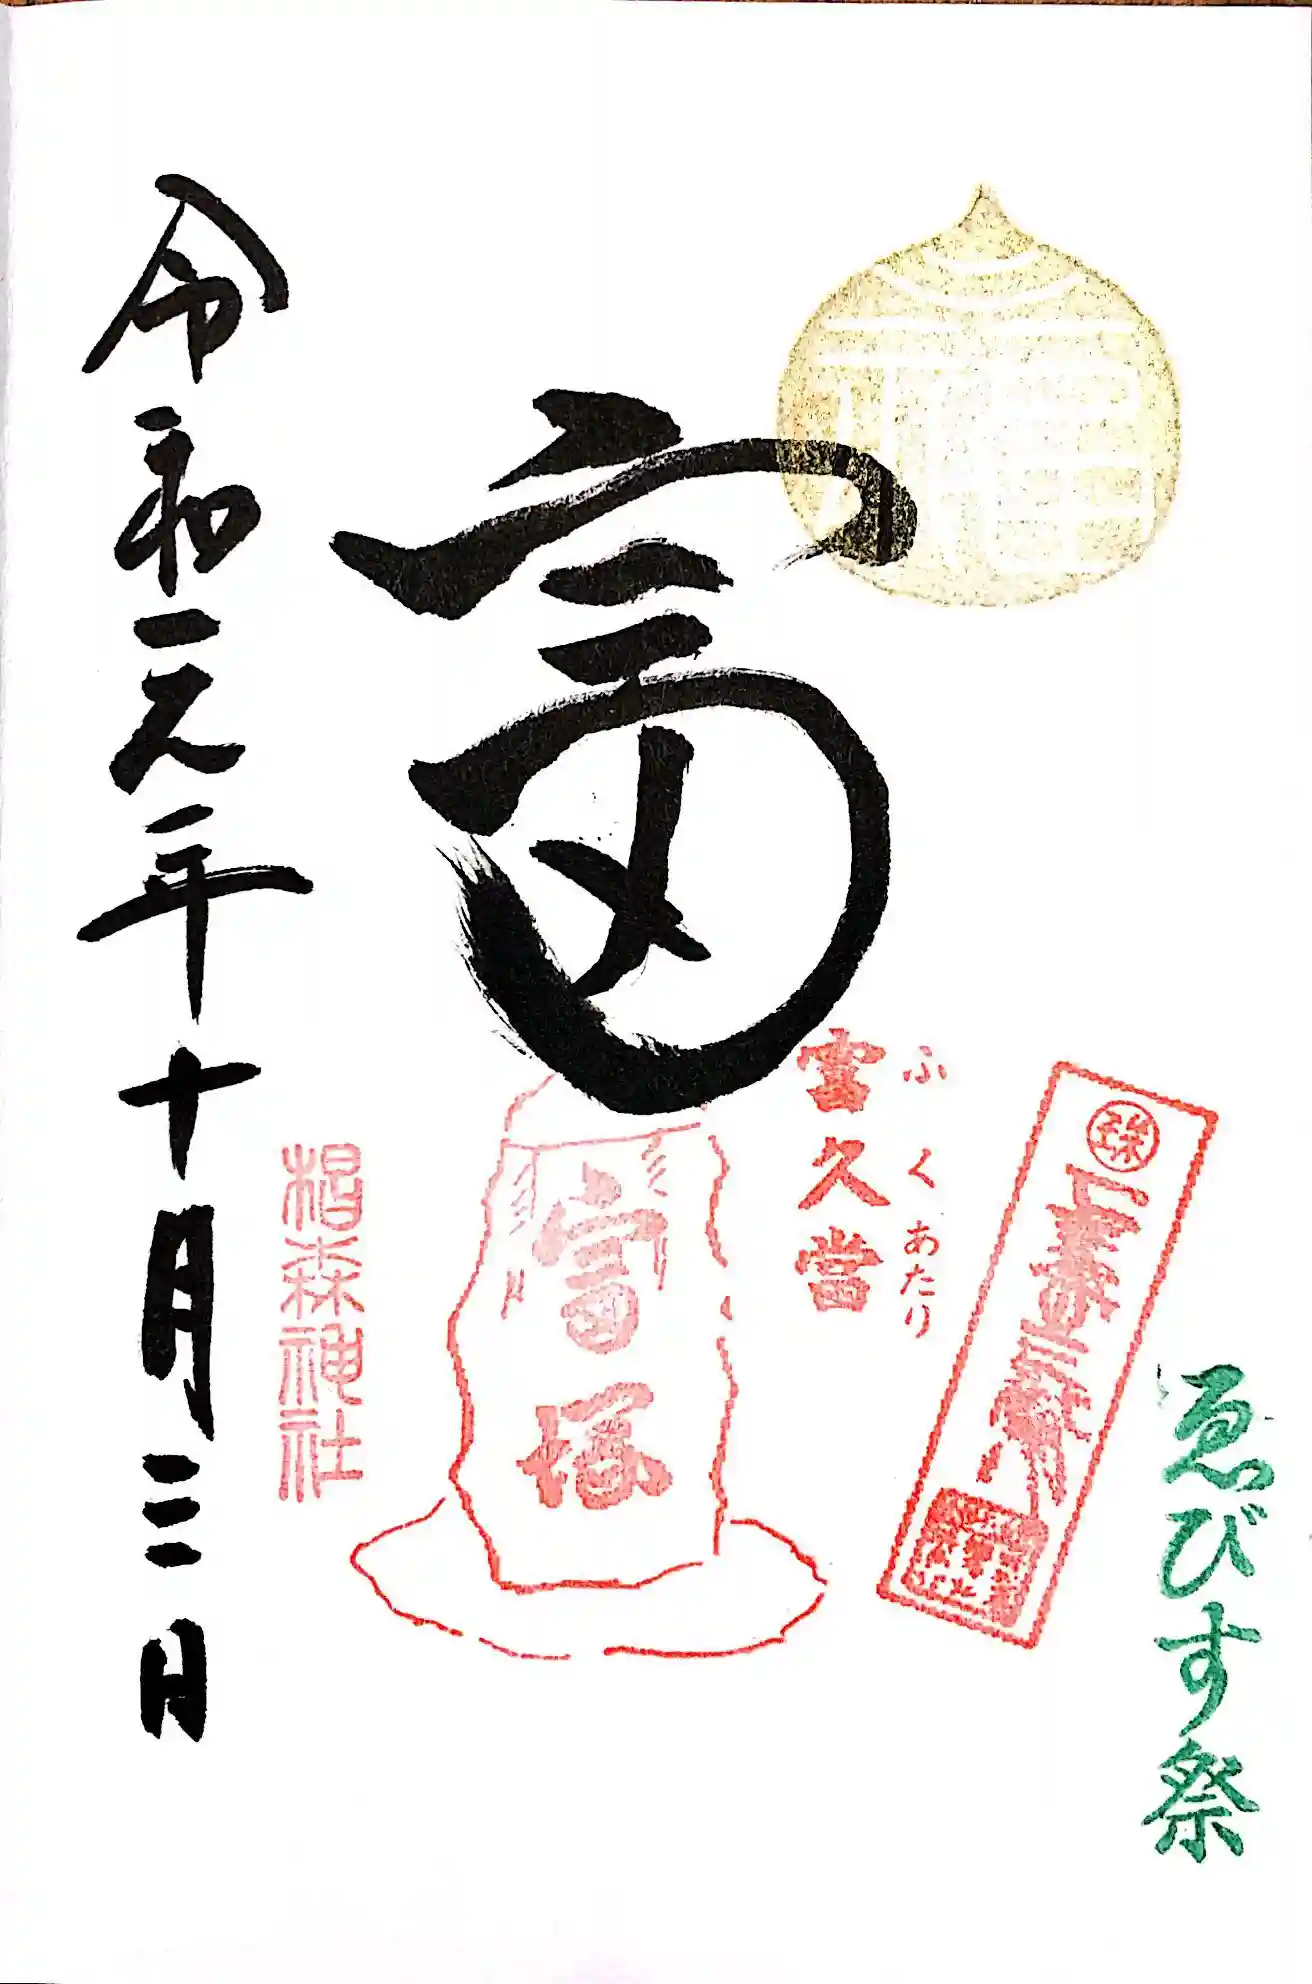 ゑびす祭
福
ふくあたり
富久當
富
富塚
椙森神社
令和元年十月三日